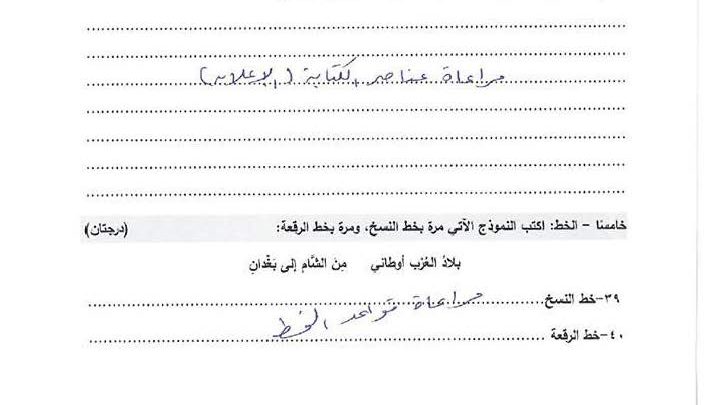 مراعاة عناصر الكتابة (الإعلان)
خامسًا – الخط: اكتب النموذج الآتي مرة بخط النسخ، ومرة بخط الرقعة: (درجتان)
بلادُ العُرْب أوطاني مِنَ الشَّامِ إلى بَغْدانِ
٣٩-خط النسخ مراعاة قواعد الخط
٤٠-خط الرقعة